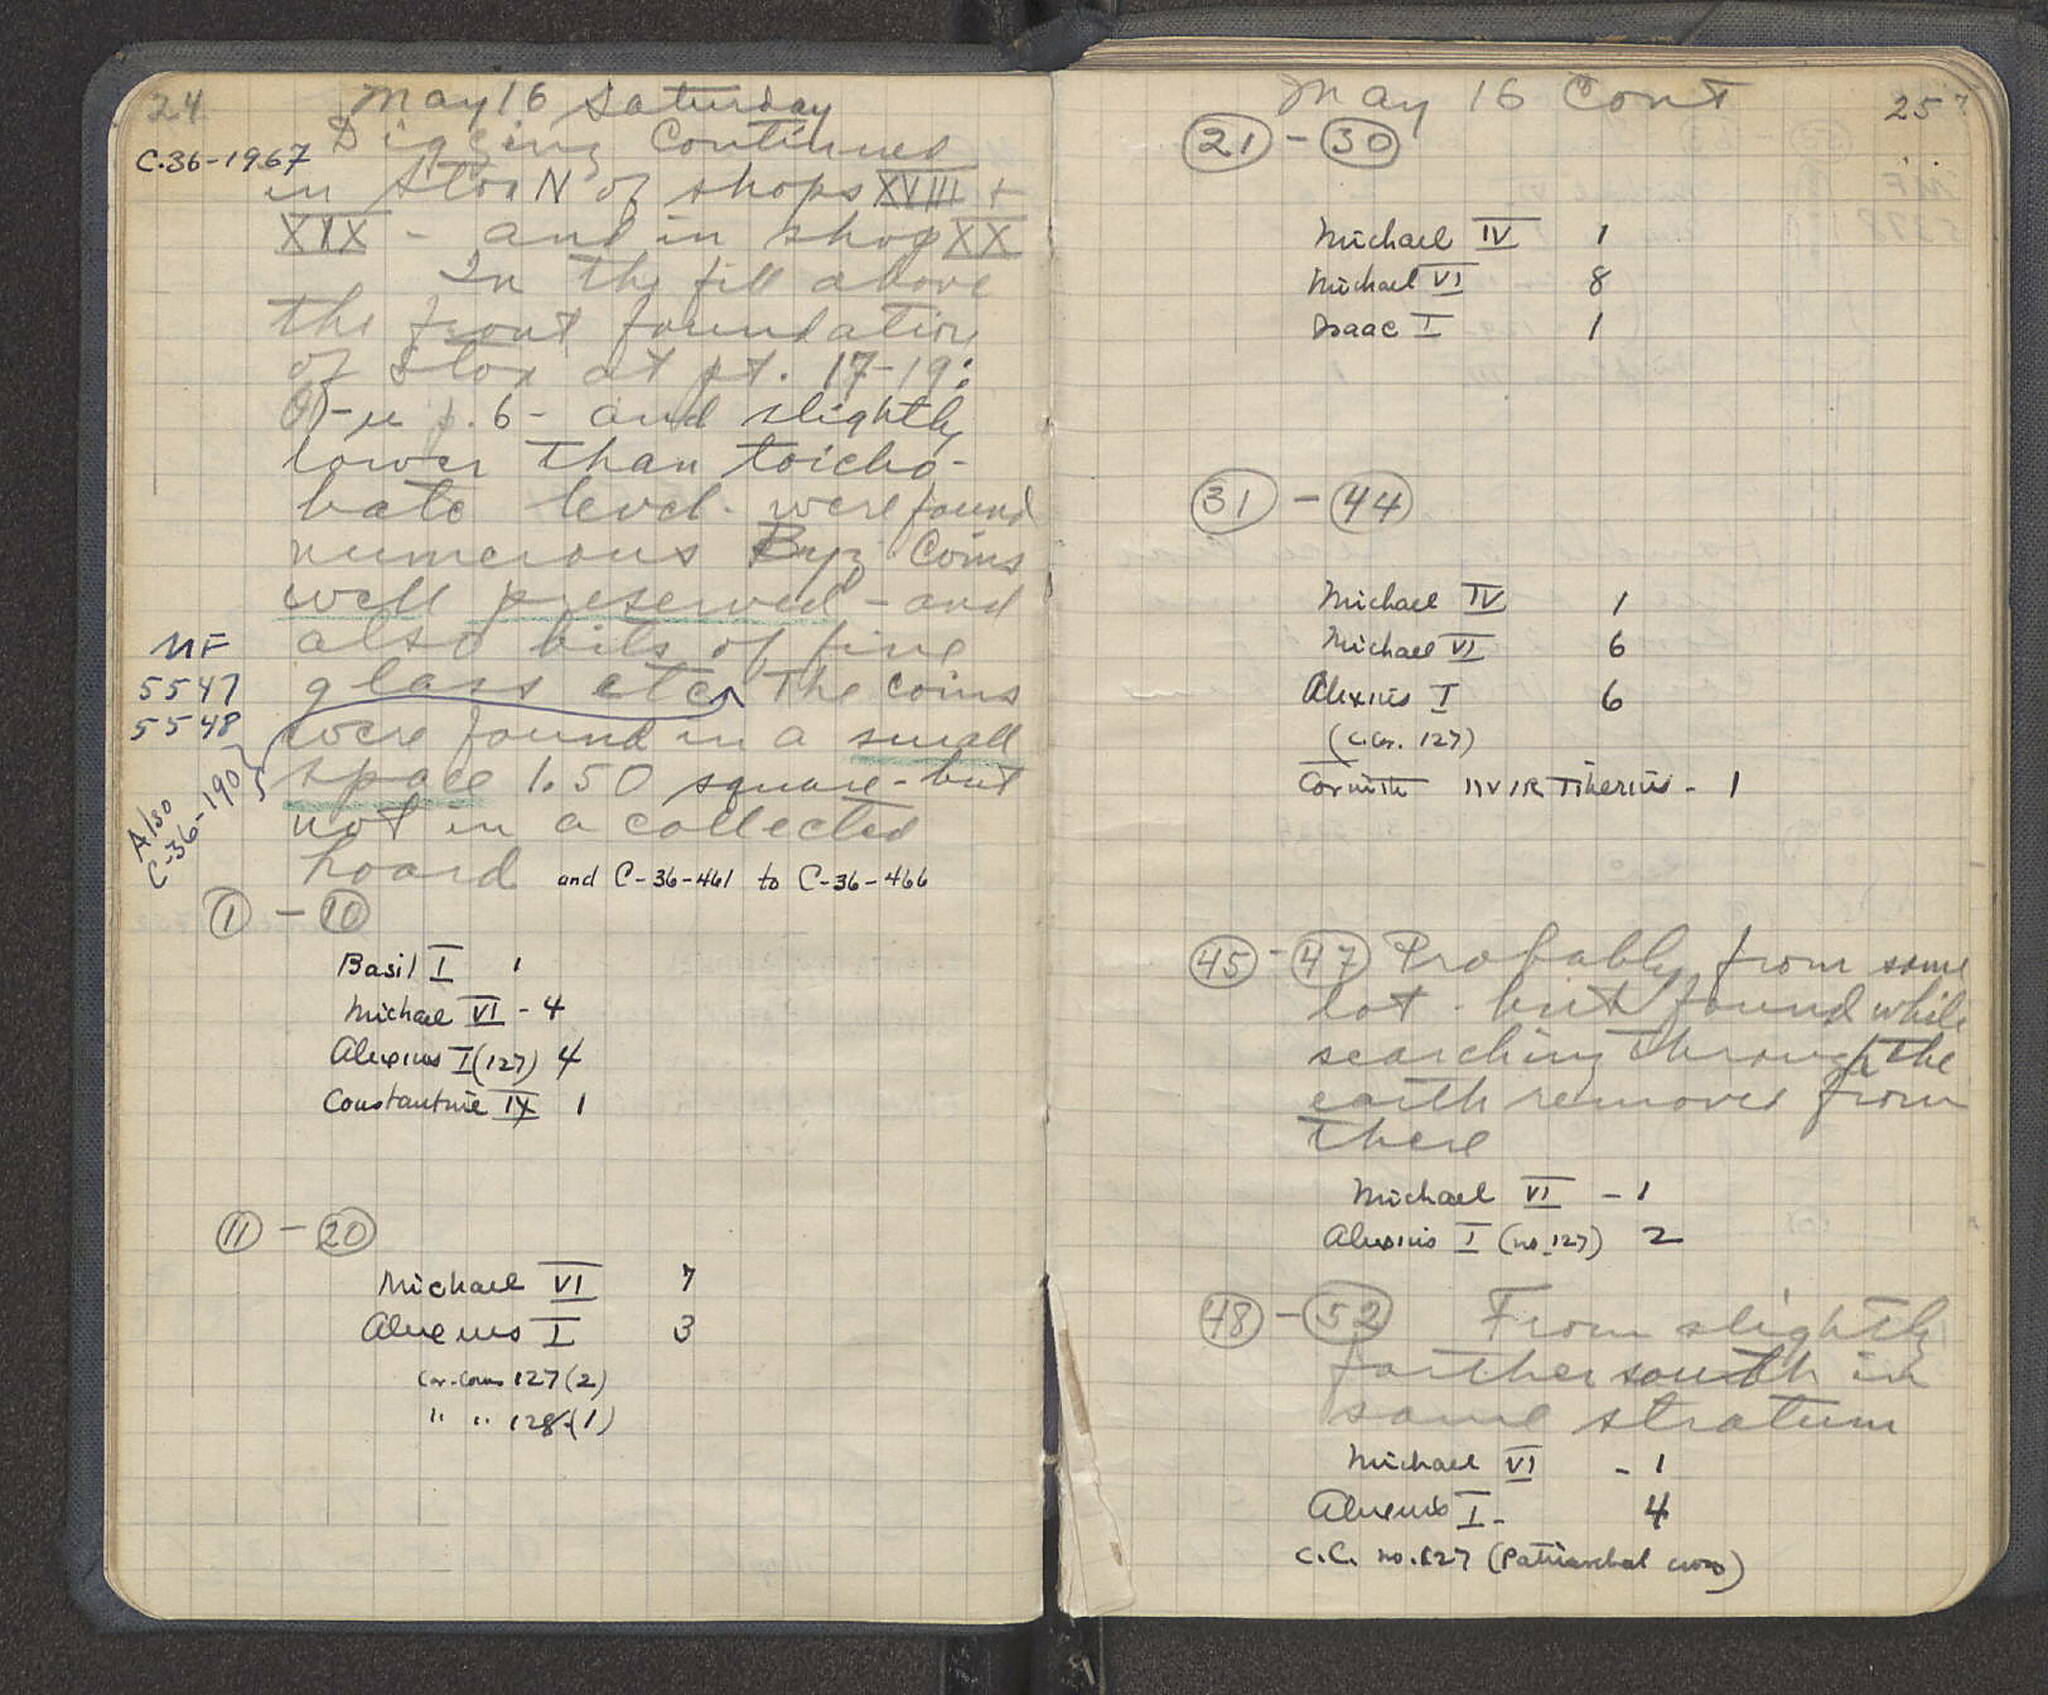 24
May 16 Saturday
C.36-1967
Digging Continued
in Stoa N of shops XVIII +
XIX - and in shop XX
In the fill above
the front foundation
of Stoa at pt. 17-19:
p. 6 - and slightly
lower than toicho-
bate level. were found
numerous Byz Coins
well preserved - and
also bits of fine
MF
5547
5548
glass etc. The coins
were found in a small
space 1.50 square - but
not in a collected
hoard and C-36-461 to C-36-466
Also
C-36-190
1 - 10
Basil I 1
Michael VI - 4
Alexius I (127) 4
Constantine IX 1
11 - 20
Michael VI 7
Alexius I 3
Cor. Coins 127 (2)
" " 128 (1)
May 16 Cont
25
21 - 30
Michael IV 1
Michael VI 8
Isaac I 1
31 - 44
Michael IV 1
Michael VI 6
Alexius I 6
(C. Cor. 127)
Corinth IIVIR Tiberius - 1
45 - 47 Probably from same
lot - but found while
searching through the
earth removed from
there
Michael VI - 1
Alexius I (no. 127) 2
48 - 52 From slightly
farther south in
same stratum
Michael VI - 1
Alexius I - 4
C.C. no. 127 (Patriarchal cross)